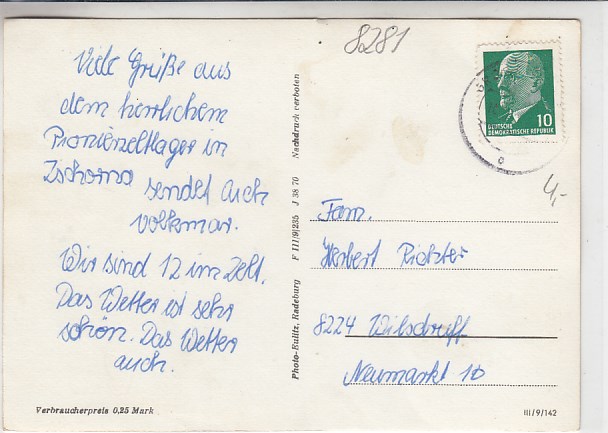 8281
Viele Grüße aus
dem herrlichem
Pionierzeltlager in
Zschorna sendet Euch
Volkmar.
Wir sind 12 im Zelt.
Das Wetter ist sehr
schön. Das Wetter
auch.
Verbraucherpreis 0,25 Mark
Photo-Eulitz, Radeburg F III/9/235 J 38 70 Nachdruck verboten
10
DEUTSCHE
DEMOKRATISCHE REPUBLIK
4,-
Fam.
Herbert Richter
8224 Wilsdruff
Neumarkt 10
III/9/142